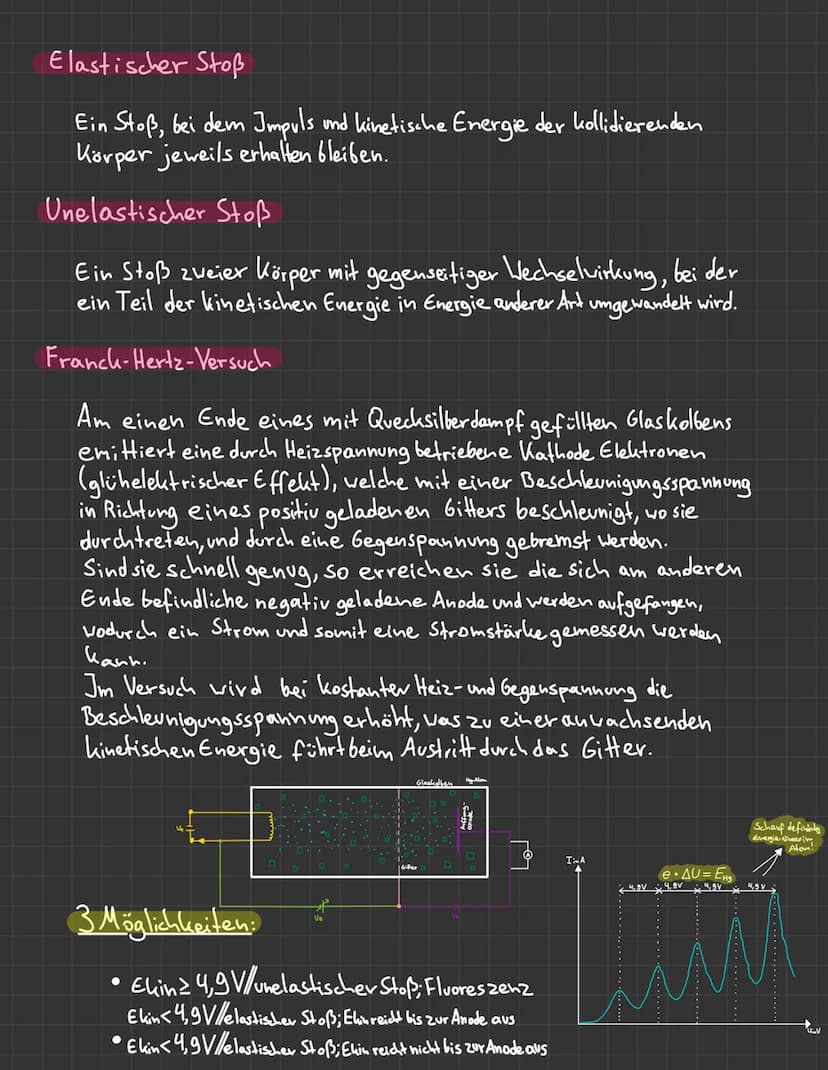 Elastischer Stoß
Ein Stoß, bei dem Impuls und kinetische Energie der kollidierenden
Körper jeweils erhalten bleiben.
Unelastischer Stoß
Ein Stoß zweier Körper mit gegenseitiger Wechselwirkung, bei der
ein Teil der kinetischen Energie in Energie anderer Art umgewandelt wird.
Franck-Hertz-Versuch
Am einen Ende eines mit Quecksilberdampf gefüllten Glaskolbens
emittiert eine durch Heizspannung betriebene Kathode Elektronen
(glühelektrischer Effekt), welche mit einer Beschleunigungsspannung
in Richtung eines positiv geladenen Gitters beschleunigt, wo sie
durchtreten, und durch eine Gegenspannung gebremst werden.
Sind sie schnell genug, so erreichen sie die sich am anderen
Ende befindliche negativ geladene Anode und werden aufgefangen,
wodurch ein Strom und somit eine Stromstärke gemessen werden
kann.
Im Versuch wird bei kostanter Heiz- und Gegenspannung die
Beschleunigungsspannung erhöht, was zu einer anwachsenden
kinetischen Energie führt beim Austritt durch das Gitter.
Glaskolben
Hg-Atom
Auffang-
anode
Gitter
A
I in A
Scharf definierte
Energieniveaus im
Atom!
e · ΔU = E Hg
4,9V 4,9V 4,9V 4,9V
U in V
3 Möglichkeiten:
• Ekin ≥ 4,9V // unelastischer Stoß; Fluoreszenz
Ekin < 4,9V // elastischer Stoß; Ekin reicht bis zur Anode aus
• Ekin < 4,9V // elastischer Stoß; Ekin reicht nicht bis zur Anode aus